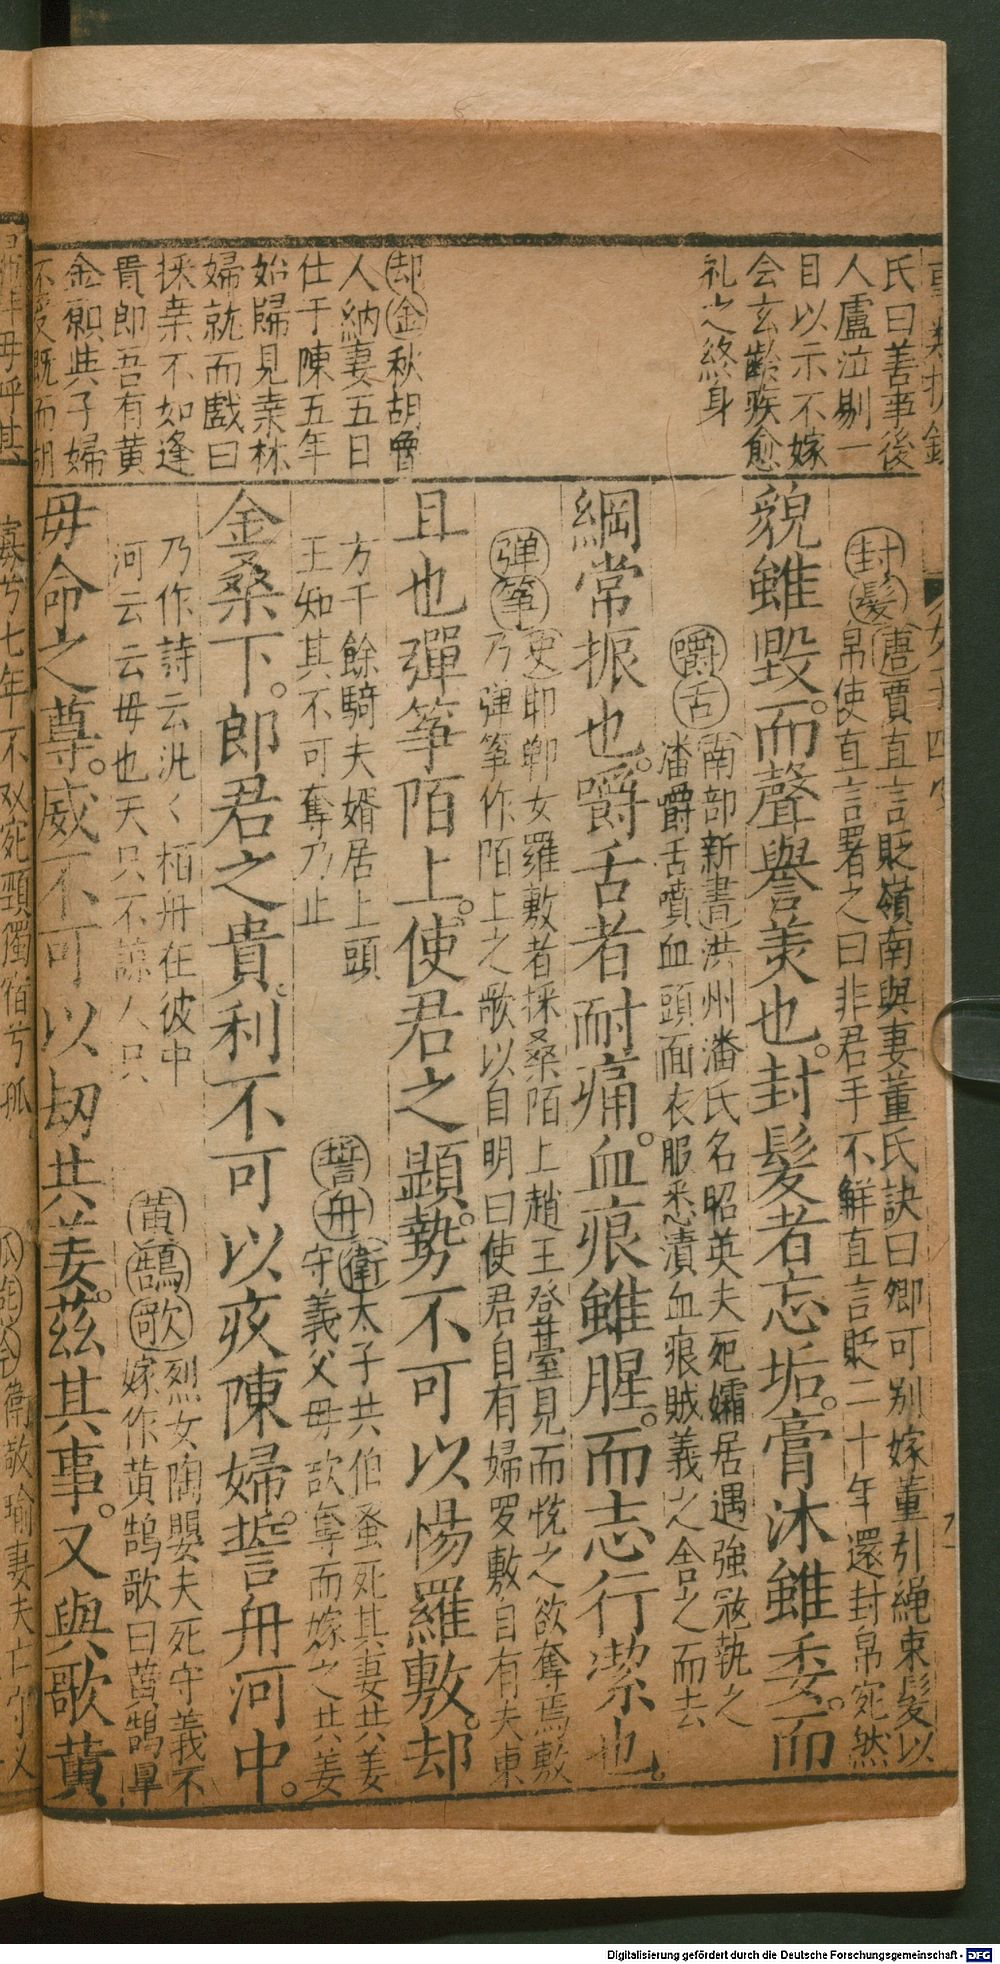 氏曰善事後
人盧泣剔一
目以示不嫁
会玄齡疾愈
礼之終身
却金秋胡魯
人納妻五日
仕于陳五年
始歸見桒林
婦就而戲曰
採桒不如逢
貴郎吾有黄
金願與子婦
不受既而胡
封髮唐賈直言貶嶺南與妻董氏訣曰卿可別嫁董引繩束髮以
帛使直言署之曰非君手不觧直言貶二十年還封帛宛然
貌雖毀。而聲譽美也。封髮者忘垢。膏沐雖委。而
嚼舌南部新書洪州潘氏名昭英夫死孀居遇強寇執之
潘嚼舌噴血頭面衣服悉漬血痕賊義之舍之而去
綱常振也。嚼舌者耐痛。血痕雖腥。而志行潔也。
弹筝史耶鄲女羅敷者採桑陌上趙王登䑓見而悦之欲奪焉敷
乃弹筝作陌上之歌以自明曰使君自有婦罗敷自有夫東
方千餘騎夫婿居上頭
王知其不可奪乃止
且也彈筝陌上。使君之顯勢。不可以惕羅敷。却
誓舟衛太子共伯蚤死其妻共姜
守義父毋欲奪而嫁之共姜
乃作詩云汎〻栢舟在彼中
河云云毋也天只不諒人只
金桑下。郎君之貴。利不可以疚陳婦。誓舟河中。
黄鵠歌烈女陶嬰夫死守義不
嫁作黄鵠歌曰黄鵠早
毋命之尊。威不可以刼共姜。茲其事。又與歌黄
寡兮七年不双宛頸獨宿兮孤
衛敬瑜妻夫亡守义
Digitalisierung gefördert durch die Deutsche Forschungsgemeinschaft - DFG